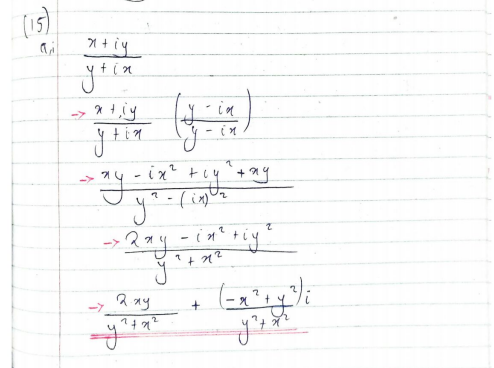 (15)
a,i x+iy / y+ix
→ x+iy / y+ix (y-ix / y-ix)
→ xy - ix² + iy² + xy / y² - (ix)²
→ 2xy - ix² + iy² / y² + x²
→ 2xy / y²+x² + (-x²+y²)i / y²+x²